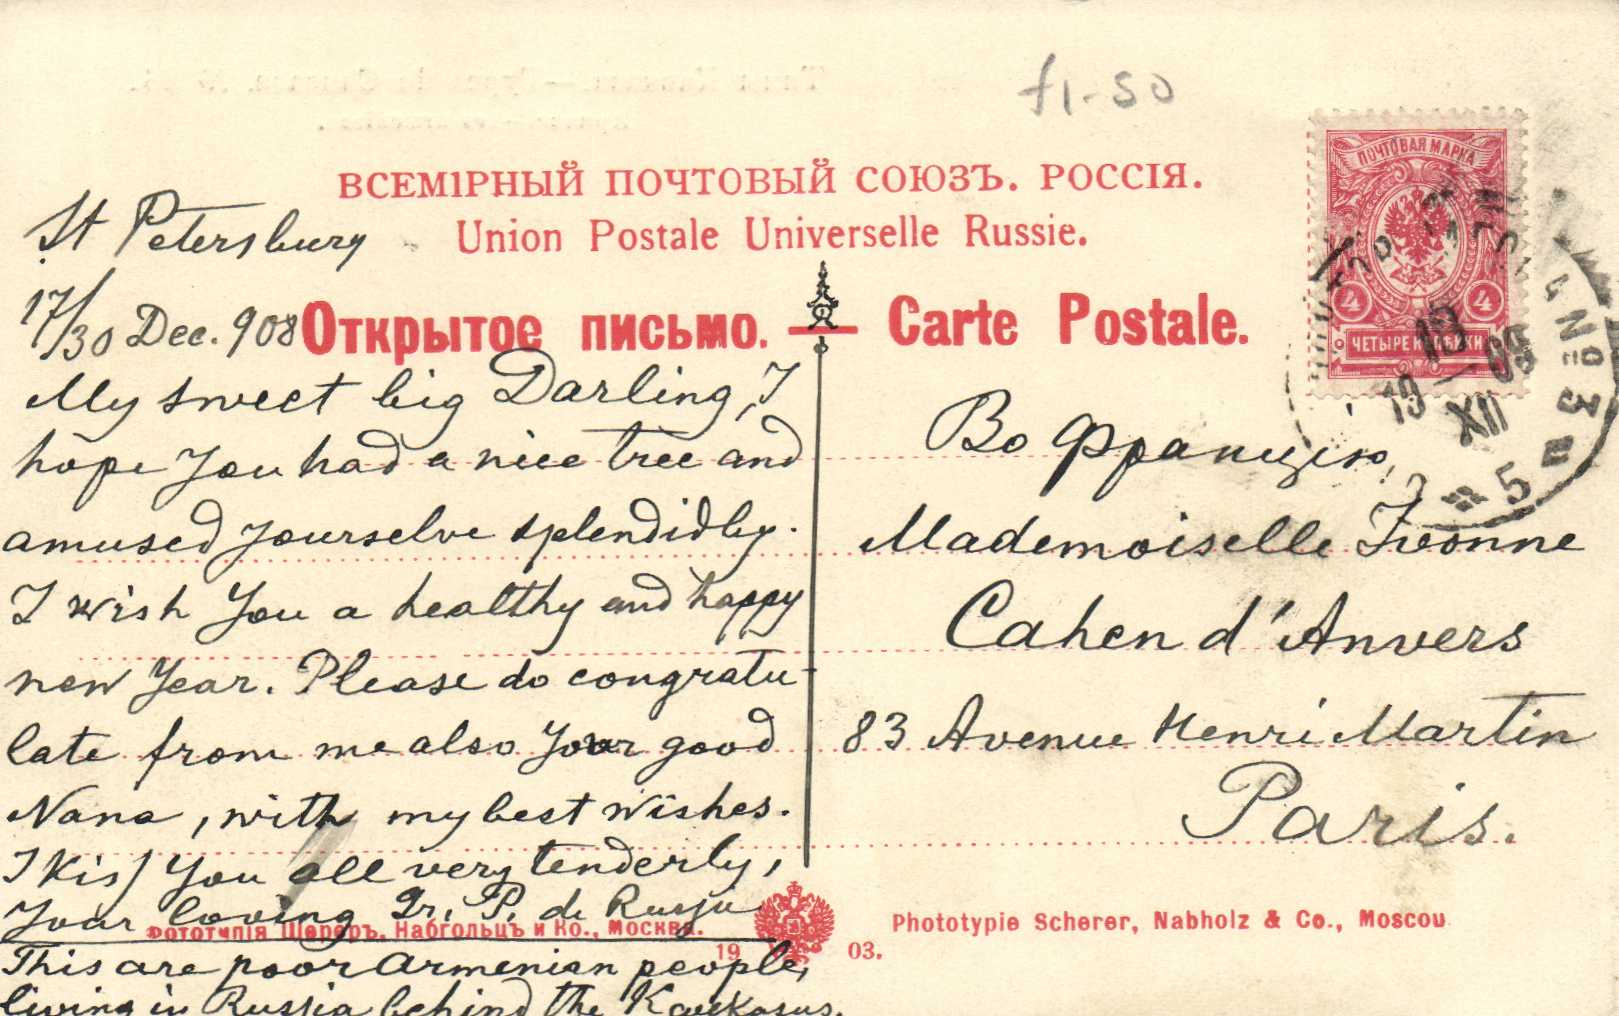 f1-50
ВСЕМІРНЫЙ ПОЧТОВЫЙ СОЮЗЪ. РОССІЯ.
Union Postale Universelle Russie.
Открытое письмо. Carte Postale.
ПОЧТОВАЯ МАРКА
4 4
ЧЕТЫРЕ КОПѢЙКИ
18
19 XII 08
№ 3
5
St Petersburg
17/30 Dec. 908
My sweet big Darling, I
hope You had a nice tree and
amused yourselve splendidly.
I wish You a healthy and happy
new Year. Please do congratu-
late from me also Your good
Nana, with my best wishes.
I kiss You all very tenderly,
Your loving Gr. P. de
This are poor armenian people,
living in Russia behind the Kaukasus.
Во Францію,
Mademoiselle Ivonne
Cahen d'Anvers
83 Avenue Henri Martin
Paris.
Фототипія Шереръ, Набгольцъ и Ко., Москва.
1903.
Phototypie Scherer, Nabholz & Co., Moscou